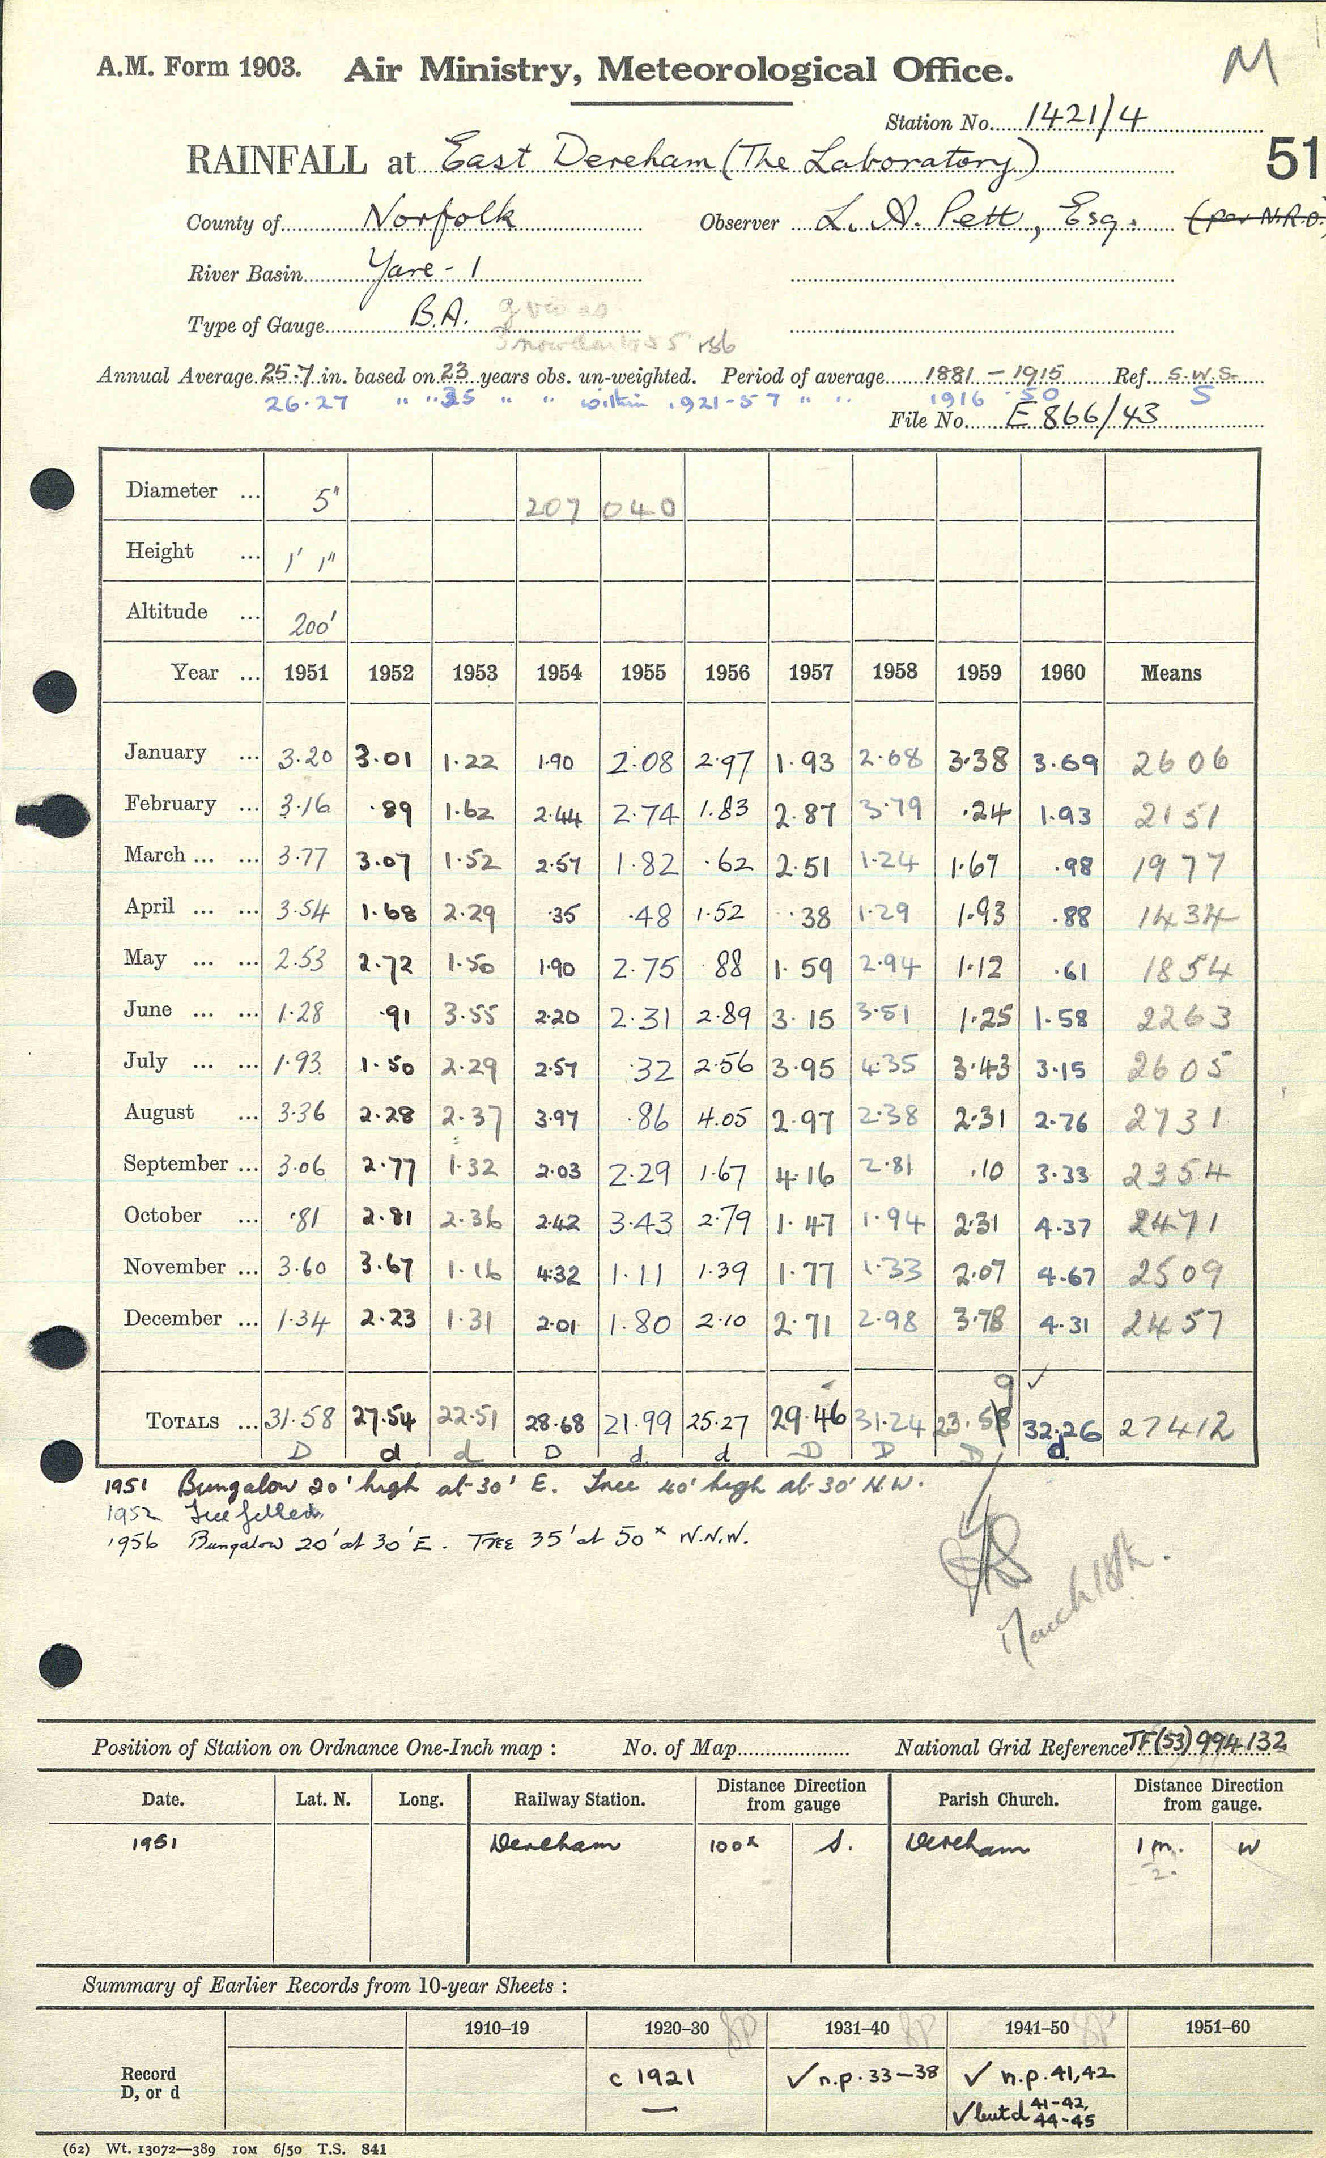 A.M. Form 1903. Air Ministry, Meteorological Office. M
Station No. 1421/4
RAINFALL at East Dereham (The Laboratory) 51
County of Norfolk Observer L. A. Pett, Esq. (per N.R.O.)
River Basin Yare - 1
Type of Gauge B.A.
Annual Average 25.7 in. based on 23 years obs. un-weighted. Period of average 1881 - 1915 Ref. S.W.S.
26.27 " " 35 " " within 1921-57 " " 1916 - 50 S
File No. E 866/43
Diameter ... 5" 207 040
Height ... 1' 1"
Altitude ... 200'
Year ... 1951 1952 1953 1954 1955 1956 1957 1958 1959 1960 Means
January ... 3.20 3.01 1.22 1.90 2.08 2.97 1.93 2.68 3.38 3.69 2606
February ... 3.16 .89 1.62 2.44 2.74 1.83 2.87 3.79 .24 1.93 2151
March ... ... 3.77 3.07 1.52 2.57 1.82 .62 2.51 1.24 1.67 .98 1977
April ... ... 3.54 1.68 2.29 .35 .48 1.52 .38 1.29 1.93 .88 1434
May ... ... 2.53 2.72 1.50 1.90 2.75 .88 1.59 2.94 1.12 .61 1854
June ... ... 1.28 .91 3.55 2.20 2.31 2.89 3.15 3.51 1.25 1.58 2263
July ... ... 1.93 1.50 2.29 2.57 .32 2.56 3.95 4.35 3.43 3.15 2605
August ... 3.36 2.28 2.37 3.97 .86 4.05 2.97 2.38 2.31 2.76 2731
September ... 3.06 2.77 1.32 2.03 2.29 1.67 4.16 2.81 .10 3.33 2354
October ... .81 2.81 2.36 2.42 3.43 2.79 1.47 1.94 2.31 4.37 2471
November ... 3.60 3.67 1.16 4.32 1.11 1.39 1.77 1.33 2.07 4.67 2509
December ... 1.34 2.23 1.31 2.01 1.80 2.10 2.71 2.98 3.78 4.31 2457
9 ✓
TOTALS ... 31.58 27.54 22.51 28.68 21.99 25.27 29.46 31.24 23.58 32.26 27412
D d d D d d D D D d
1951 Bungalow 20' high at 30' E. Tree 40' high at 30' N.W.
1952 Tree felled
1956 Bungalow 20' at 30' E. TREE 35' at 50ˣ W.N.W.
March 18th.
Position of Station on Ordnance One-Inch map : No. of Map National Grid Reference TF(53)994132
Date. Lat. N. Long. Railway Station. Distance from gauge Direction Parish Church. Distance from gauge. Direction
1951 Dereham 100ˣ S. Dereham 1/2 m. W
Summary of Earlier Records from 10-year Sheets :
1910–19 1920–30 1931–40 1941–50 1951–60
Record D, or d c 1921 — ✓ n.p. 33–38 ✓ n.p. 41,42
✓ but d 41-42, 44-45
(62) Wt. 13072—389 10M 6/50 T.S. 841